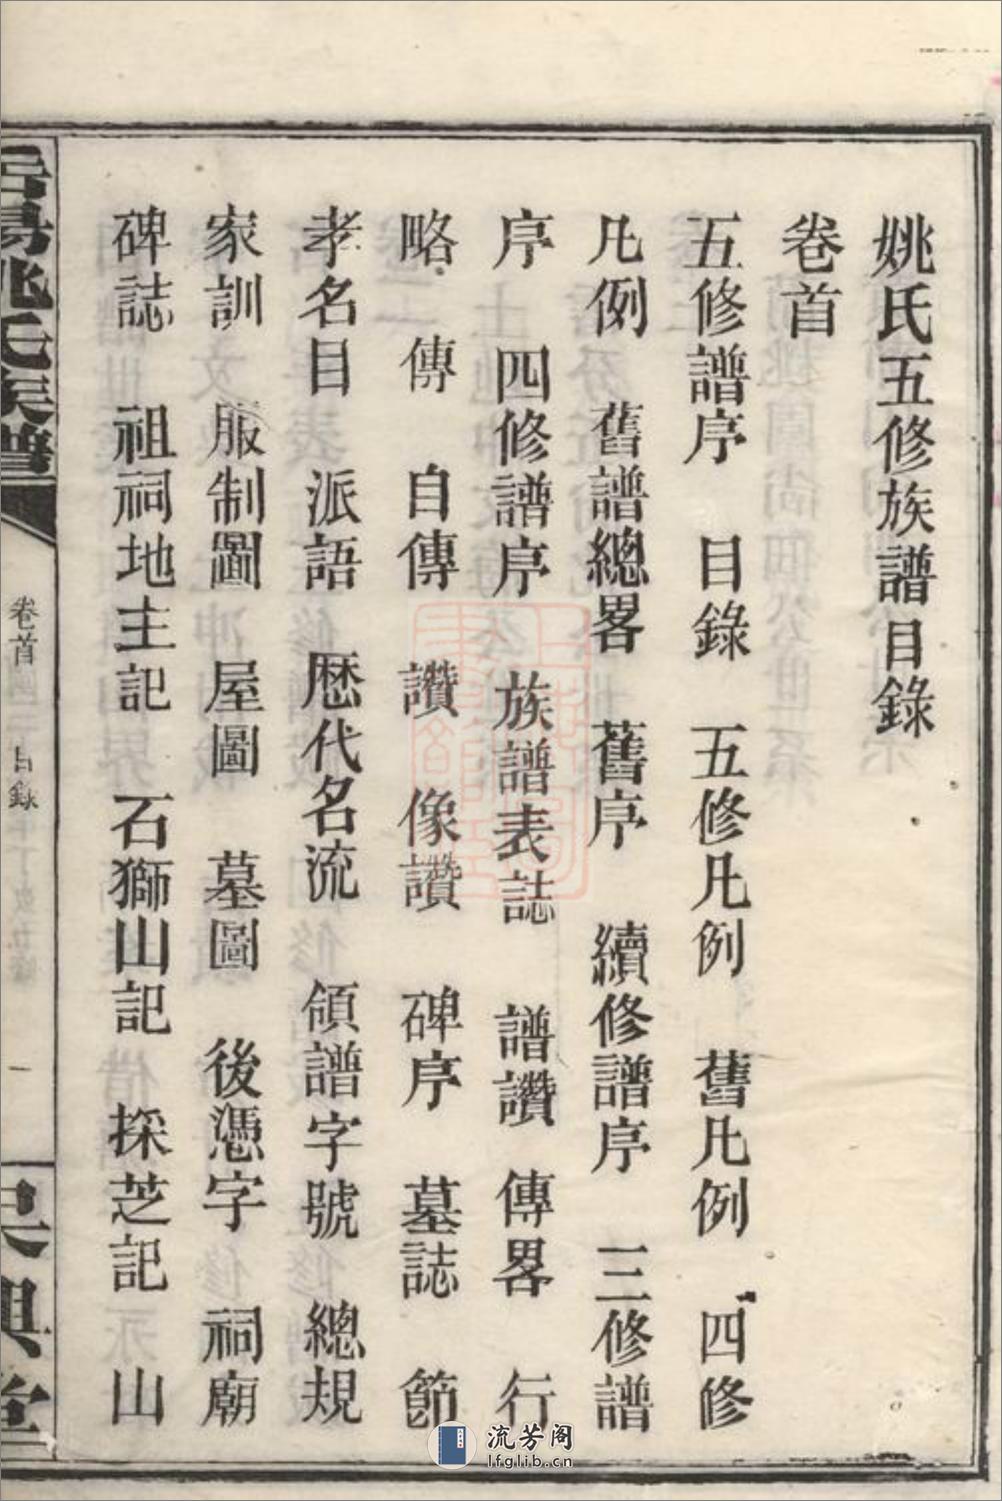 姚氏五修族譜目錄
卷首
五修譜序 目錄 五修凡例 舊凡例 四修
凡例 舊譜總畧 舊序 續修譜序 三修譜
序 四修譜序 族譜表誌 譜讚 傳畧 行
略 傳 自傳 讚 像讚 碑序 墓誌 節
孝名目 派語 歷代名流 領譜字號 總規
家訓 服制圖 屋圖 墓圖 後憑字 祠廟
碑誌 祖祠地主記 石獅山記 採芝記 山
姚氏族譜
卷首
目錄
一
吳興堂
流芳阁
lfglib.cn